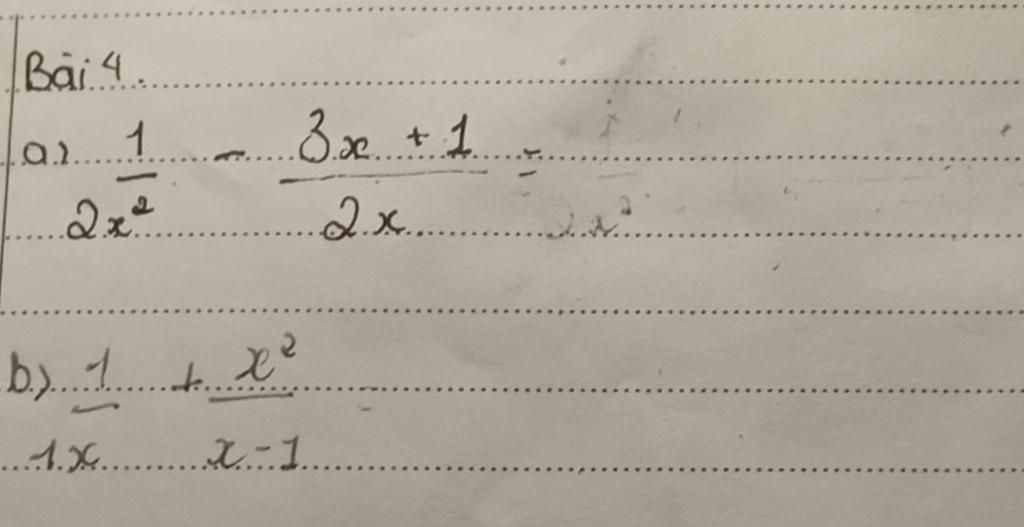 Bài 4.
a) 1/2x² - 3x + 1/2x =
b) 1/1x + x²/x-1